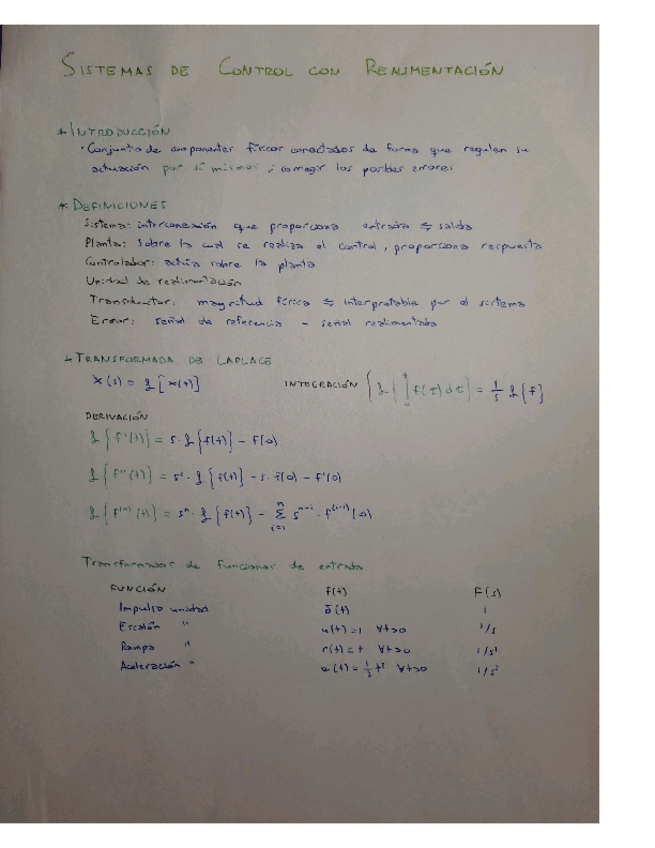 SISTEMAS DE CONTROL CON REALIMENTACIÓN
* INTRODUCCIÓN
· Conjunto de componentes físicos conectados de forma que regulen su
actuación por sí mismos y corregir los posibles errores
* DEFINICIONES
Sistema: interconexión que proporciona entrada ⇆ salida
Planta: Sobre la cual se realiza el control, proporciona respuesta
Controlador: actúa sobre la planta
Unidad de realimentación
Transductor: magnitud física ⇆ interpretable por el sistema
Error: señal de referencia - señal realimentada
* TRANSFORMADA DE LAPLACE
X(s) = L[x(t)] INTEGRACIÓN { L{∫f(τ)dτ} = 1/s L{f}
DERIVACIÓN
L{f'(t)} = s·L{f(t)} - f(0)
L{f''(t)} = s²·L{f(t)} - s·f(0) - f'(0)
L{f⁽ⁿ⁾(t)} = sⁿ·L{f(t)} - Σ(i=1, n) sⁿ⁻ⁱ·f⁽ⁱ⁻¹⁾(0)
Transformadas de funciones de entrada
FUNCIÓN f(t) F(s)
Impulso unidad δ(t) 1
Escalón " u(t)=1 ∀t>0 1/s
Rampa " r(t)=t ∀t>0 1/s²
Aceleración " a(t)=½t² ∀t>0